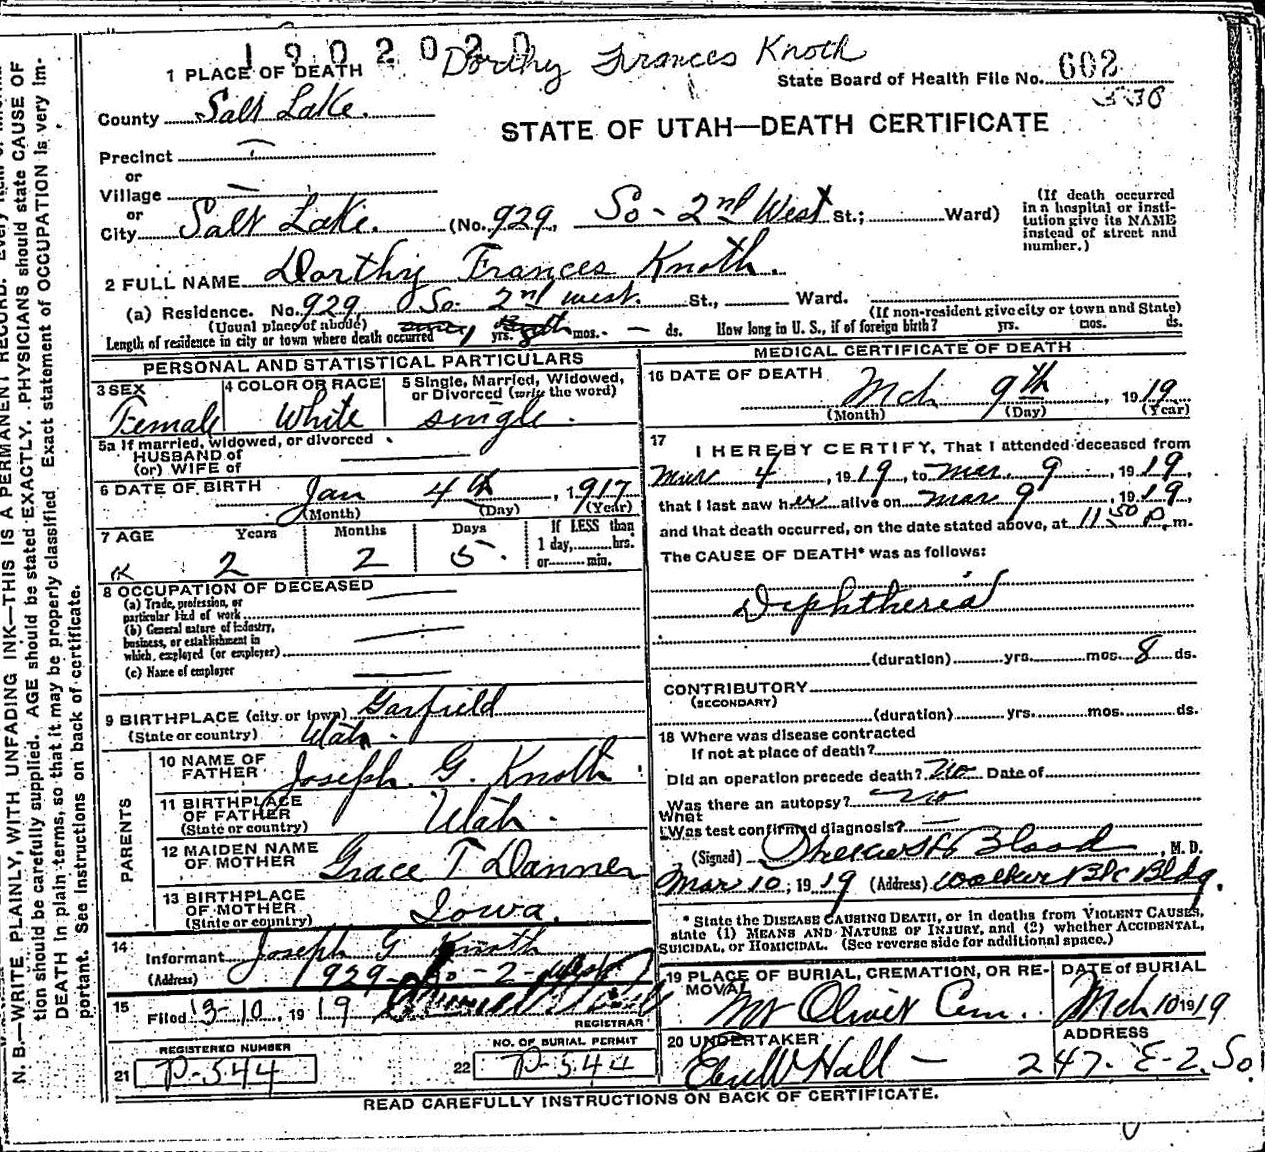 1902020 Dorthy Frances Knoth
1 PLACE OF DEATH
State Board of Health File No. 602
County Salt Lake.
STATE OF UTAH—DEATH CERTIFICATE
Precinct
or
Village
or
City Salt Lake. (No. 929, So - 2nd West St.; Ward)
(If death occurred in a hospital or institution give its NAME instead of street and number.)
2 FULL NAME Dorthy Frances Knoth.
(a) Residence. No. 929 So. 2nd west. St., Ward.
(Usual place of abode) (If non-resident give city or town and State)
Length of residence in city or town where death occurred yrs. mos. — ds. How long in U. S., if of foreign birth? yrs. mos. ds.
PERSONAL AND STATISTICAL PARTICULARS
3 SEX Female
4 COLOR OR RACE White
5 Single, Married, Widowed, or Divorced (write the word) single.
5a If married, widowed, or divorced
HUSBAND of
(or) WIFE of
6 DATE OF BIRTH Jan 4th, 1917
(Month) (Day) (Year)
7 AGE Years Months Days If LESS than
1 day, hrs.
or min.
2 2 5.
8 OCCUPATION OF DECEASED
(a) Trade, profession, or particular kind of work
(b) General nature of industry, business, or establishment in which employed (or employer)
(c) Name of employer
9 BIRTHPLACE (city or town) Garfield
(State or country) Utah.
PARENTS
10 NAME OF FATHER Joseph G. Knoth
11 BIRTHPLACE OF FATHER (State or country) Utah.
12 MAIDEN NAME OF MOTHER Grace T Danner
13 BIRTHPLACE OF MOTHER (State or country) Iowa.
14 Informant Joseph G Knoth
(Address) 929 So - 2 - West
15 Filed 3-10, 1919
REGISTRAR
REGISTERED NUMBER
21 P-544
NO. OF BURIAL PERMIT
22 P-544
MEDICAL CERTIFICATE OF DEATH
16 DATE OF DEATH Mch 9th, 1919
(Month) (Day) (Year)
17 I HEREBY CERTIFY, That I attended deceased from
Mar 4, 1919, to Mar. 9, 1919,
that I last saw her alive on Mar 9, 1919,
and that death occurred, on the date stated above, at 11 50 P. m.
The CAUSE OF DEATH* was as follows:
Diphtheria
(duration) yrs. mos. 8 ds.
CONTRIBUTORY
(SECONDARY)
(duration) yrs. mos. ds.
18 Where was disease contracted
If not at place of death?
Did an operation precede death? No Date of
Was there an autopsy? No
What
Was test confirmed diagnosis? —
(Signed) Blood, M. D.
Mar 10, 1919 (Address) Walker Bk Bldg.
* State the DISEASE CAUSING DEATH, or in deaths from VIOLENT CAUSES,
state (1) MEANS AND NATURE OF INJURY, and (2) whether ACCIDENTAL,
SUICIDAL, or HOMICIDAL. (See reverse side for additional space.)
19 PLACE OF BURIAL, CREMATION, OR REMOVAL Mt Olivet Cem.
DATE of BURIAL Mch 10 1919
20 UNDERTAKER Hall —
ADDRESS 247. E-2. So.
READ CAREFULLY INSTRUCTIONS ON BACK OF CERTIFICATE.
N. B.—WRITE PLAINLY, WITH UNFADING INK—THIS IS A PERMANENT RECORD. Every item of
tion should be carefully supplied. AGE should be stated EXACTLY. PHYSICIANS should state CAUSE OF
DEATH in plain terms, so that it may be properly classified. Exact statement of OCCUPATION is very im-
portant. See Instructions on back of certificate.